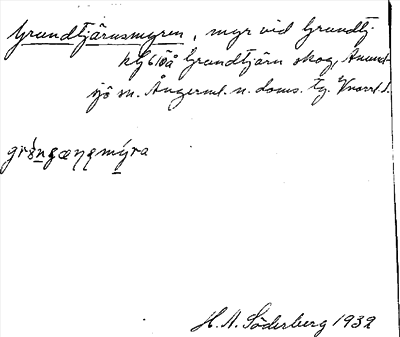 Grundtjärnsmyren, myr vid Grundtj.
kg 610å Grundtjärn skog, Anund-
sjö sn. Ångerml. n. doms. tg. Västernorrl. l.
myra
H. A. Söderberg 1932